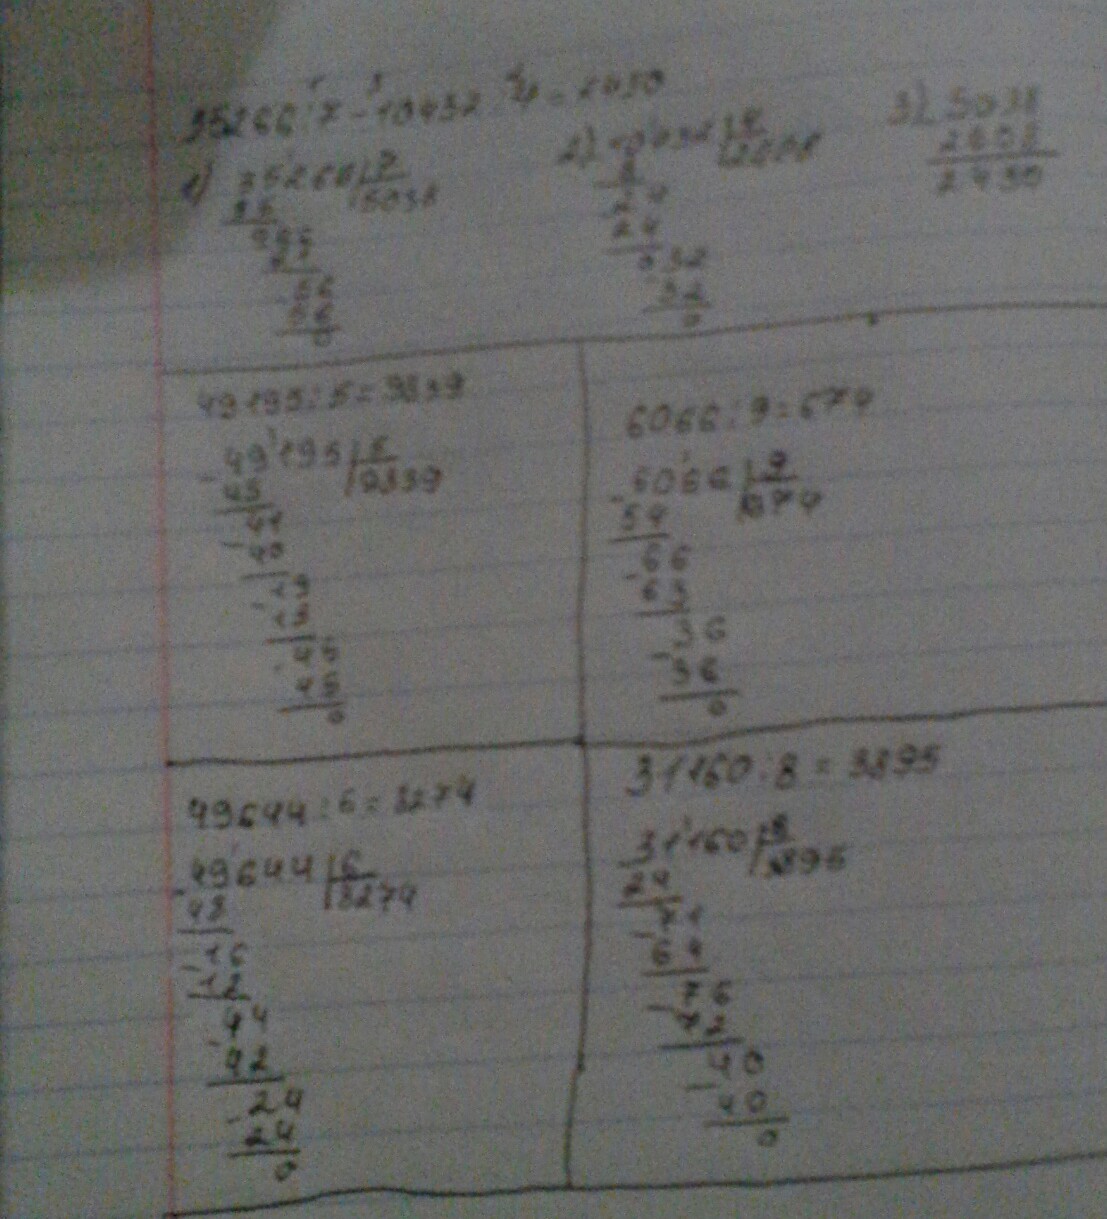 35266:7-10432:4=2430
1) 35266|7
35 |5038
26
21
56
56
0
2) 10432|4
8 |2608
24
24
032
32
0
3) 5038
2608
2430
49195:5=9839
49195|5
45 |9839
41
40
19
15
45
45
0
6066:9=674
6066|9
54 |674
66
63
36
36
0
49644:6=8274
49644|6
48 |8274
16
12
44
42
24
24
0
31160:8=3895
31160|8
24 |3895
71
64
76
72
40
40
0